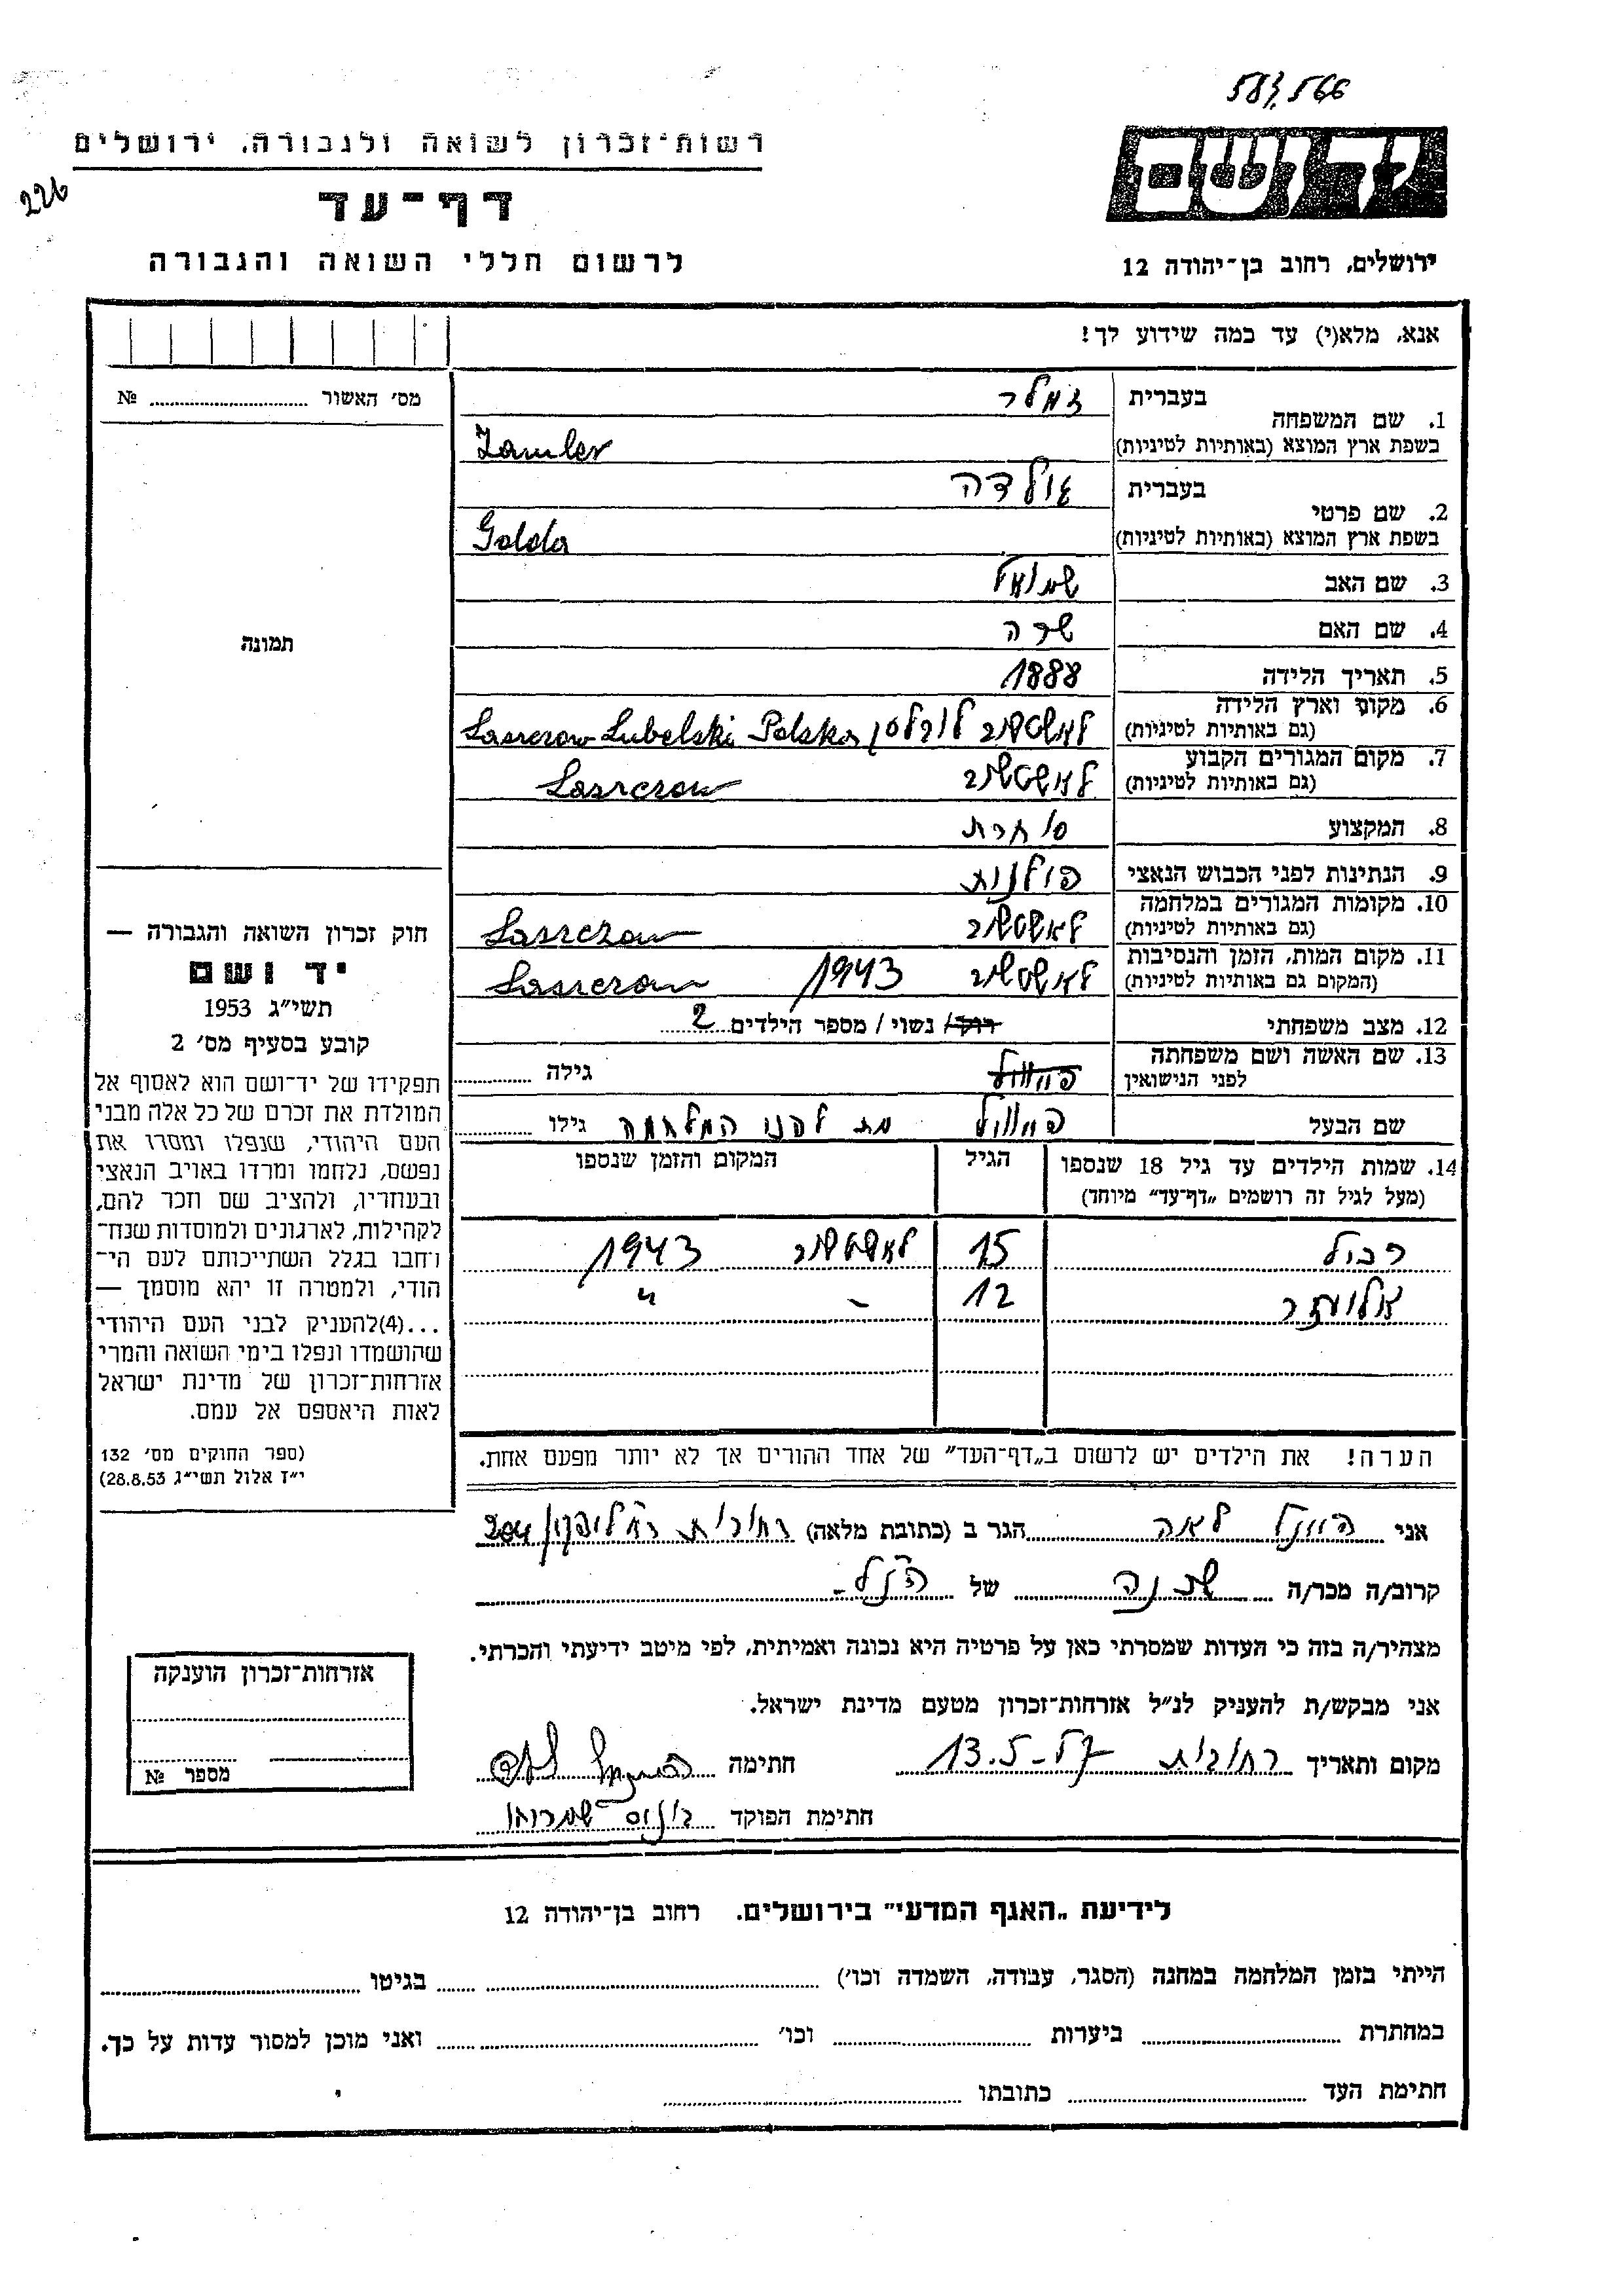 583,566
רשות־זכרון לשואה ולגבורה, ירושלים
יד ושם
226
דף־עד
לרשום חללי השואה והגבורה
ירושלים, רחוב בן־יהודה 12
אנא, מלא(י) עד כמה שידוע לך!
מס׳ האשור № 
תמונה
חוק זכרון השואה והגבורה —
יד ושם
תשי״ג 1953
קובע בסעיף מס׳ 2
תפקידו של יד־ושם הוא לאסוף אל
המולדת את זכרם של כל אלה מבני
העם היהודי, שנפלו ומסרו את
נפשם, נלחמו ומרדו באויב הנאצי
ובעוזריו, ולהציב שם וזכר להם,
לקהילות, לארגונים ולמוסדות שנח־
רחבו בגלל השתייכותם לעם הי־
הודי, ולמטרה זו יהא מוסמך —
...(4)להעניק לבני העם היהודי
שהושמדו ונפלו בימי השואה והמרי
אזרחות־זכרון של מדינת ישראל
לאות היאספם אל עמם.
(ספר החוקים מס׳ 132
י״ז אלול תשי״ג 28.8.53)
1. שם המשפחה
בעברית זמלר
בשפת ארץ המוצא (באותיות לטיניות) Zamler
2. שם פרטי
בעברית גולדה
בשפת ארץ המוצא (באותיות לטיניות) Golda
3. שם האב שמואל
4. שם האם שרה
5. תאריך הלידה 1888
6. מקום וארץ הלידה
(גם באותיות לטיניות) לאשטשוב לובלסקי Laszczow Lubelski Polska
7. מקום המגורים הקבוע
(גם באותיות לטיניות) לאשטשוב Laszczow
8. המקצוע סוחרת
9. הנתינות לפני הכבוש הנאצי פולנית
10. מקומות המגורים במלחמה
(גם באותיות לטיניות) לאשטשוב Laszczow
11. מקום המות, הזמן והנסיבות
(המקום גם באותיות לטיניות) לאשטשוב 1943 Laszczow
12. מצב משפחתי רוק/ נשוי / מספר הילדים 2
13. שם האשה ושם משפחתה
לפני הנישואין גילה
שם הבעל מת לפני המלחמה גילו
14. שמות הילדים עד גיל 18 שנספו הגיל המקום והזמן שנספו
(מעל לגיל זה רושמים „דף־עד״ מיוחד)
15 לאשטשוב 1943
12 – "
הערה! את הילדים יש לרשום ב„דף־העד״ של אחד ההורים אך לא יותר מפעם אחת.
אני לאה הגר ב (כתובת מלאה) רחובות 204
קרוב/ה מכר/ה שכנה של הנ"ל
מצהיר/ה בזה כי העדות שמסרתי כאן על פרטיה היא נכונה ואמיתית, לפי מיטב ידיעתי והכרתי.
אני מבקש/ת להעניק לנ״ל אזרחות־זכרון מטעם מדינת ישראל.
מקום ותאריך רחובות 13.5- חתימה
חתימת הפוקד
אזרחות־זכרון הוענקה
מספר №
לידיעת „האגף המדעי״ בירושלים. רחוב בן־יהודה 12
הייתי בזמן המלחמה במחנה (הסגר, עבודה, השמדה וכו׳) בגיטו
במחתרת ביערות וכו׳ ואני מוכן למסור עדות על כך.
חתימת העד כתובתו